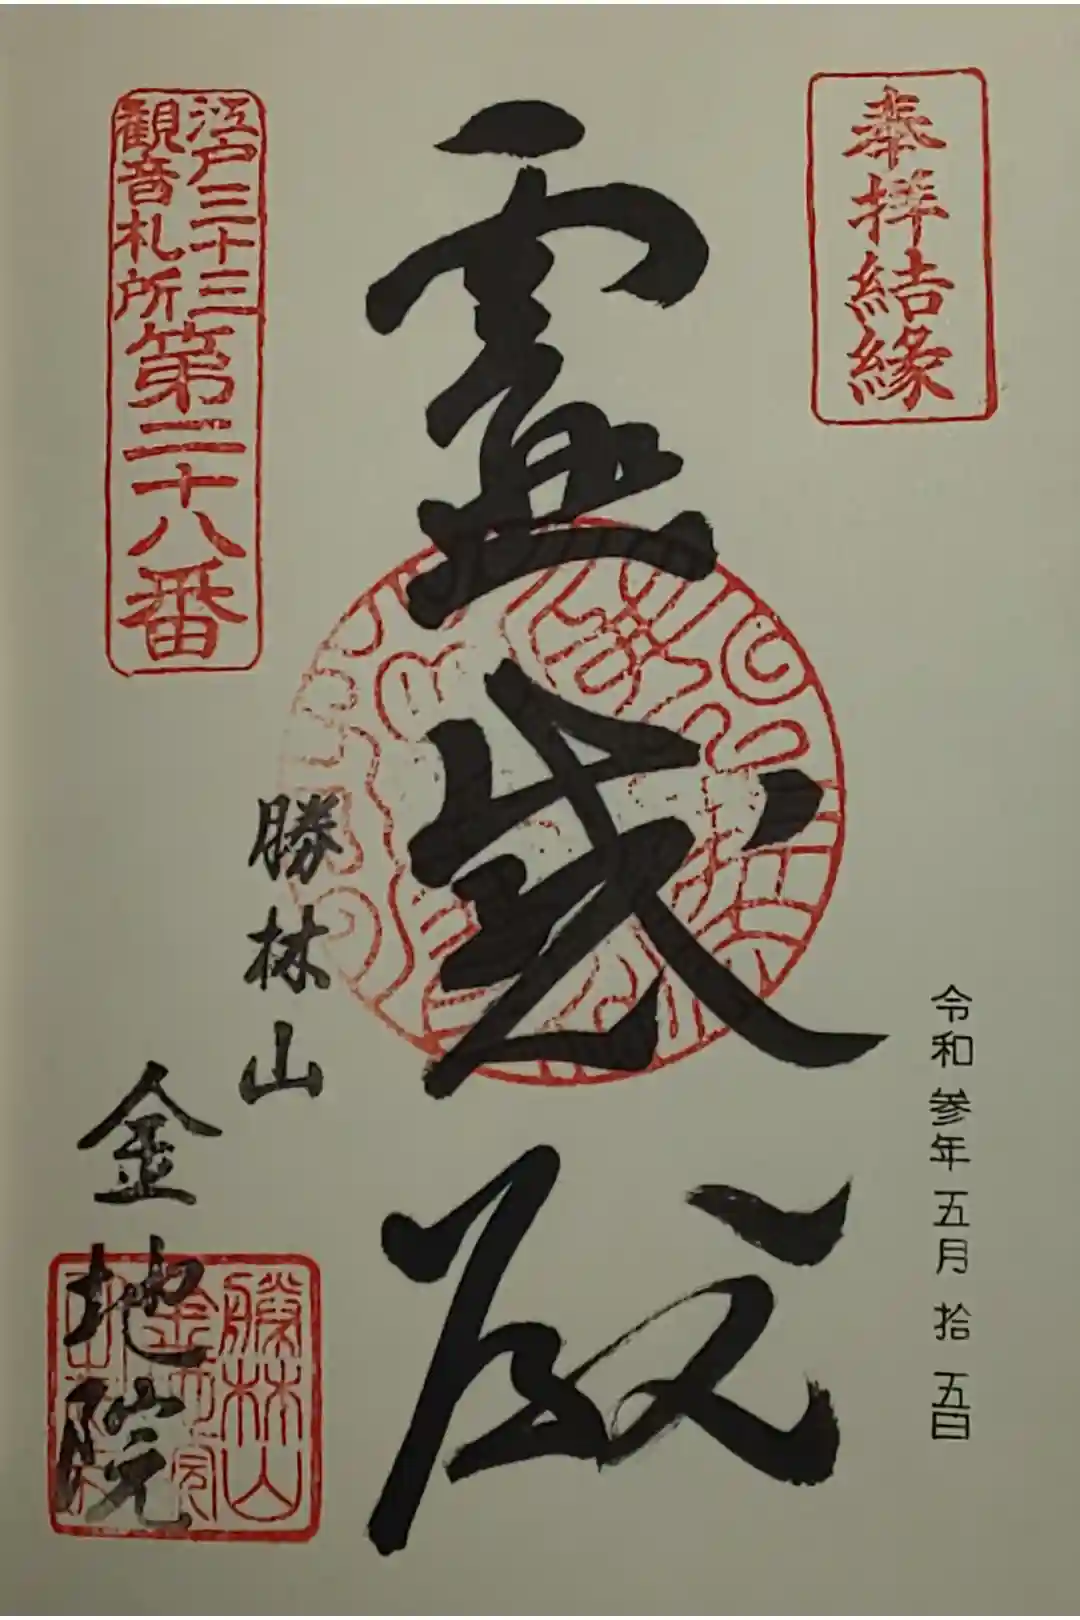 奉拝結縁
令和参年五月拾五日
霊感殿
江戸三十三
観音札所
第二十八番
勝林山
金地院
勝林山
金地院